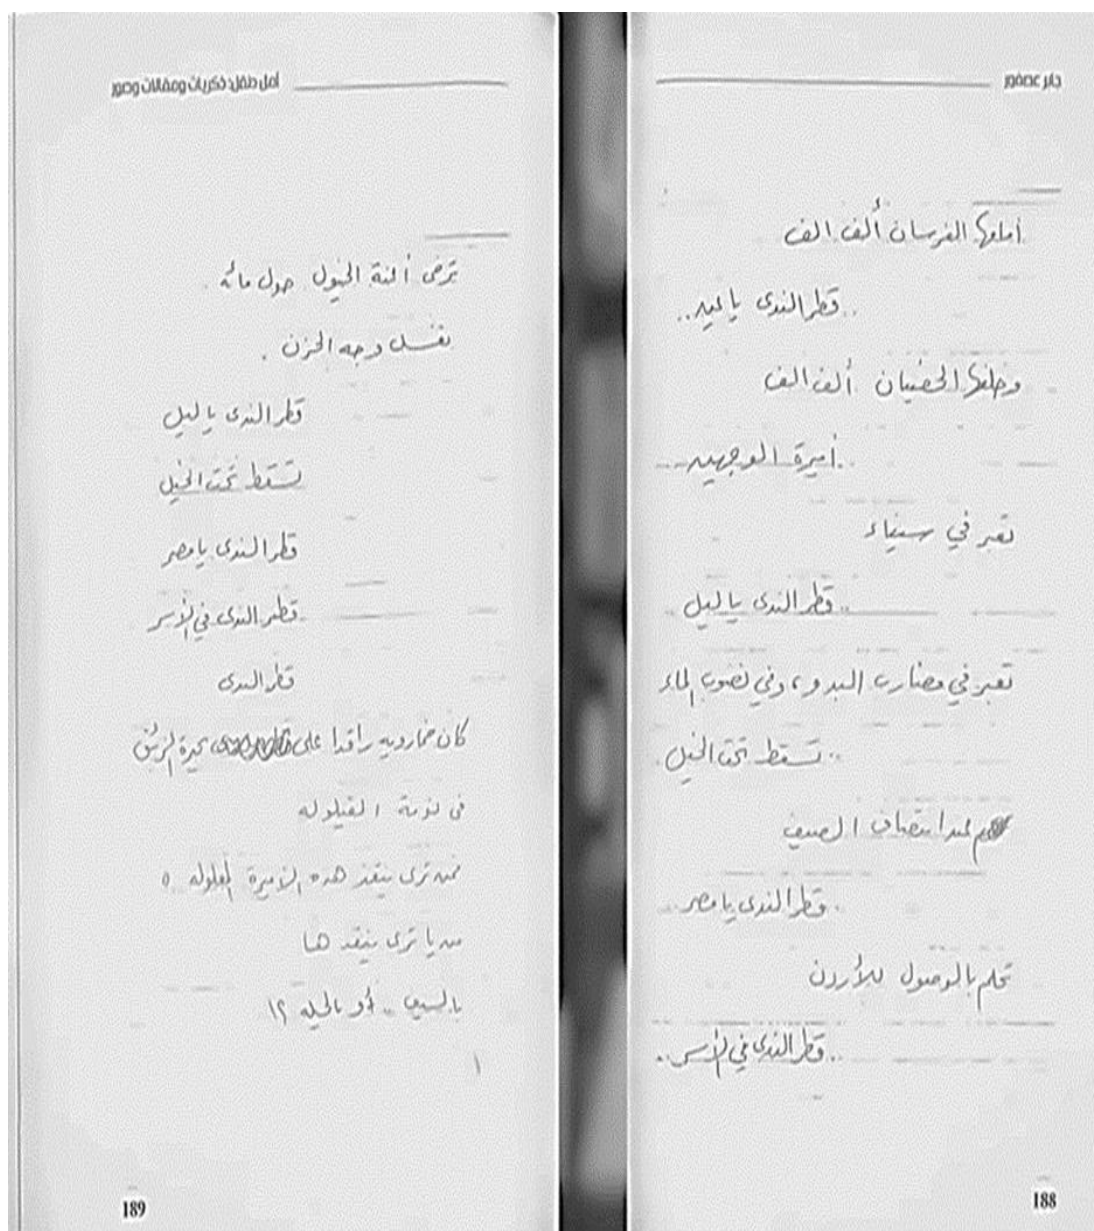 جابر عصفور
أمامها الفرسان ألف الف
..قطر الندى يا عين..
وخلفها الخصيان ألف الف
..أميرة الوجهين..
تعبر في سيناء
..قطر الندى يا ليل
تعبر في مضارب البدو، وفي نضوب الماء
..تسقط تحت الخيل.
عند انتصاف الصيف
..قطر الندى يا مصر..
تحلم بالوصول للأردن
..قطر الندى في الأسر..
188
أمل دنقل: ذكريات ومقالات وصور
ترخى أعنة الخيول حول مائه.
تغسل وجه الحزن.
قطر الندى يا ليل
تسقط تحت الخيل
قطر الندى يا مصر
قطر الندى في الأسر
قطر الندى
كان خمارويه راقدا على بحيرة الزئبق
فى نومة القيلوله
فمن ترى ينقذ هذه الأميرة المغلوله ؟
من يا ترى ينقذها
بالسيف .. أو بالحيله ؟!
189